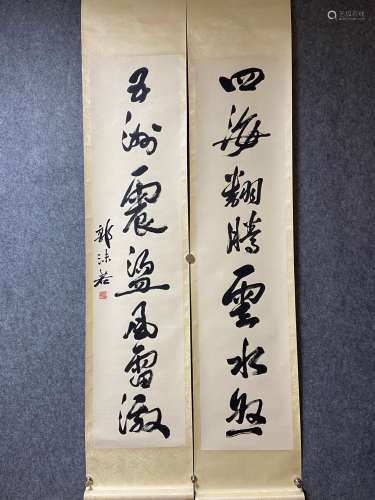 四海翻騰雲水怒
五洲震盪風雷激
郭沫若